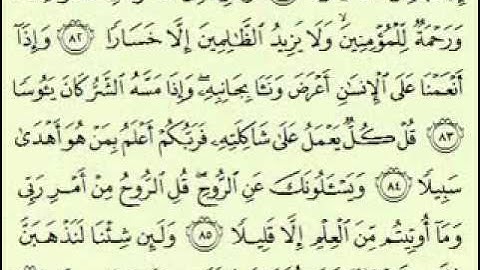 وَرَحْمَةٌ لِّلْمُؤْمِنِينَ وَلَا يَزِيدُ الظَّالِمِينَ إِلَّا خَسَارًا ٨٢ وَإِذَا
أَنْعَمْنَا عَلَى الْإِنسَانِ أَعْرَضَ وَنَـَٔا بِجَانِبِهِ وَإِذَا مَسَّهُ الشَّرُّ كَانَ يَـُٔوسًا
٨٣ قُلْ كُلٌّ يَعْمَلُ عَلَىٰ شَاكِلَتِهِ فَرَبُّكُمْ أَعْلَمُ بِمَنْ هُوَ أَهْدَىٰ
سَبِيلًا ٨٤ وَيَسْـَٔلُونَكَ عَنِ الرُّوحِ قُلِ الرُّوحُ مِنْ أَمْرِ رَبِّي
وَمَا أُوتِيتُم مِّنَ الْعِلْمِ إِلَّا قَلِيلًا ٨٥ وَلَئِن شِئْنَا لَنَذْهَبَنَّ